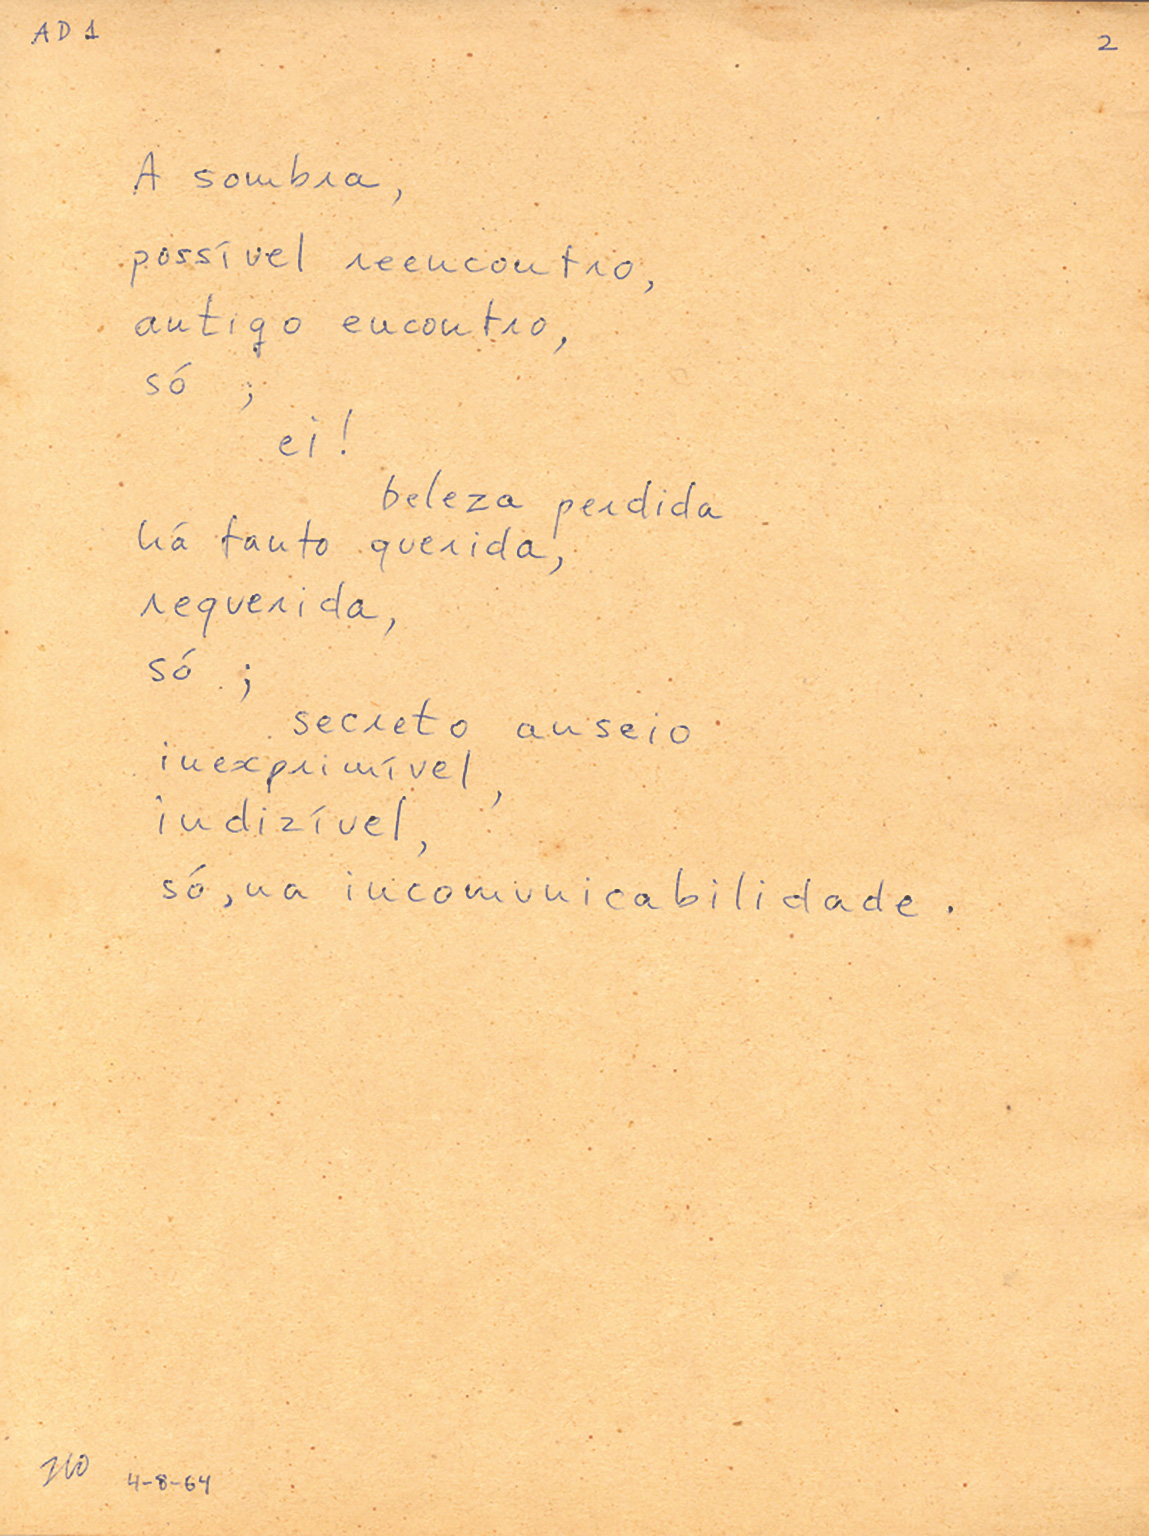 AD 1
2
A sombra,
possível reencontro,
antigo encontro,
só ;
ei!
beleza perdida
há tanto querida,
requerida,
só ;
secreto anseio
inexprimível,
indizível,
só, na incomunicabilidade.
4-8-64